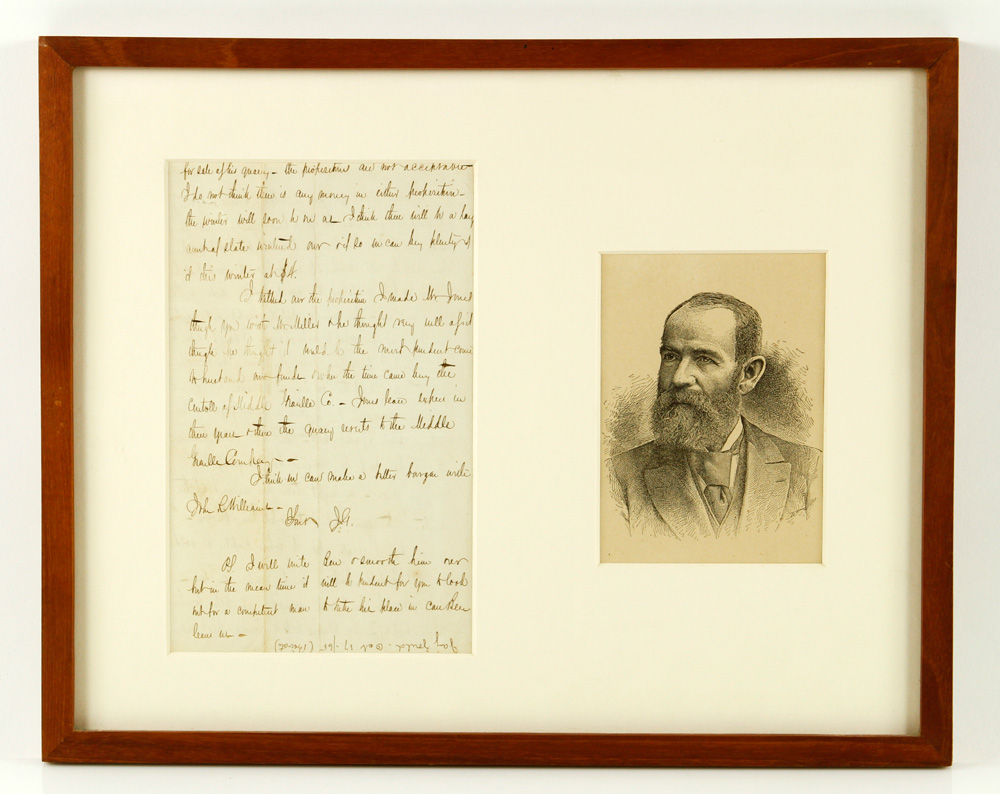 for sale of his quarry - the propositions are not acceptable
I do not think there is any money in either proposition -
the winter will soon be on as I think there will be a large
amt of slate over & if so we can buy plenty of
it this winter at $4.
I talked over the proposition I made Mr Jones
though you with Mr Miller & he thought very well of it
though he thought it would be the most prudent course
to husband our funds & when the time came buy the
Controll of Middle Granville Co. - Jones lease expires in
three years & then the quarry reverts to the Middle
Granville Company - -
I think we can make a better bargain with
John L Williams -
Yours J.G.
PS I will write Ben & smooth him over
but in the mean time it will be prudent for you to look
out for a competent man to take his place in case Ben
leave us -
Jay Oct 17